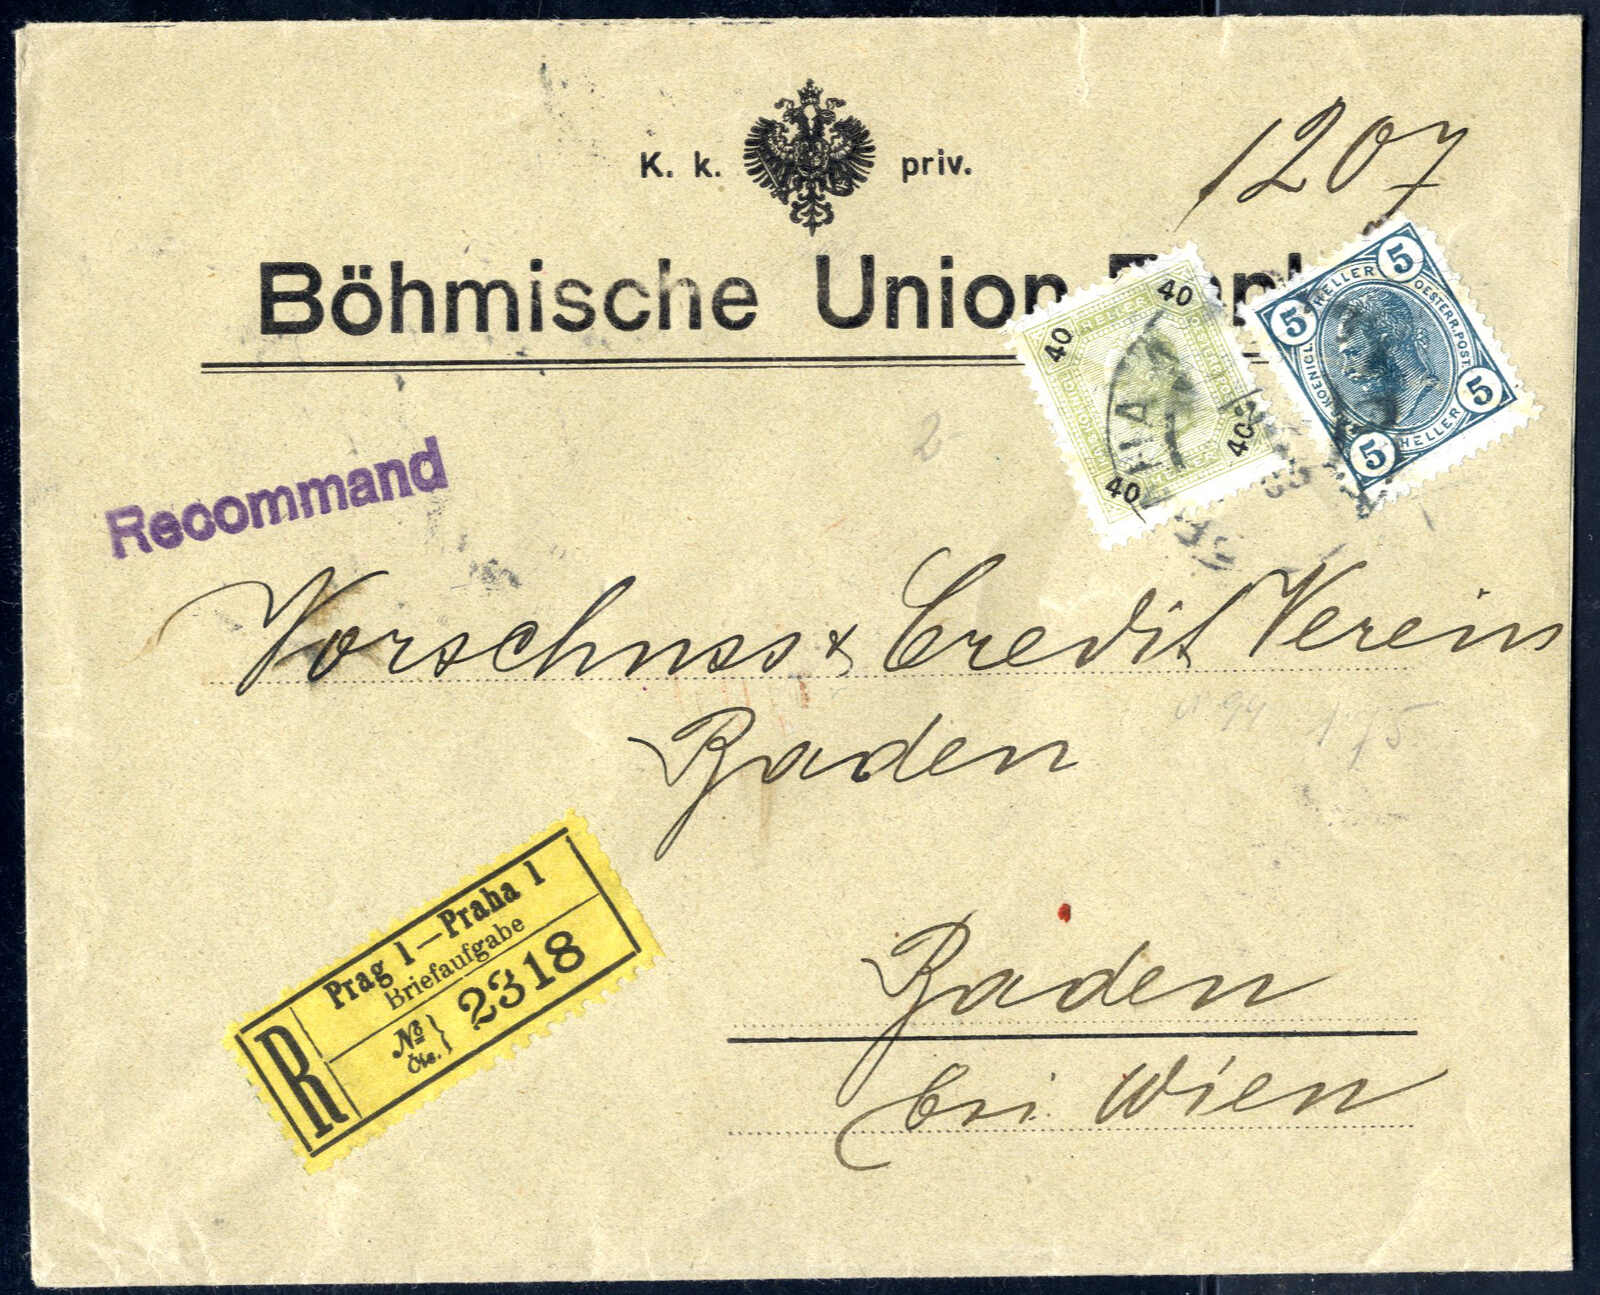 1207
K. k. priv.
Böhmische Union
40 HELLER 40
40
40
HELLER
5 HELLER 5
OESTERR. POST
5 HELLER 5
KOENIGL.
Recommand
Vorschuss & Credit Verein
Baden
Prag 1—Praha 1
Briefaufgabe
R № Čís. } 2318
Baden
bei Wien